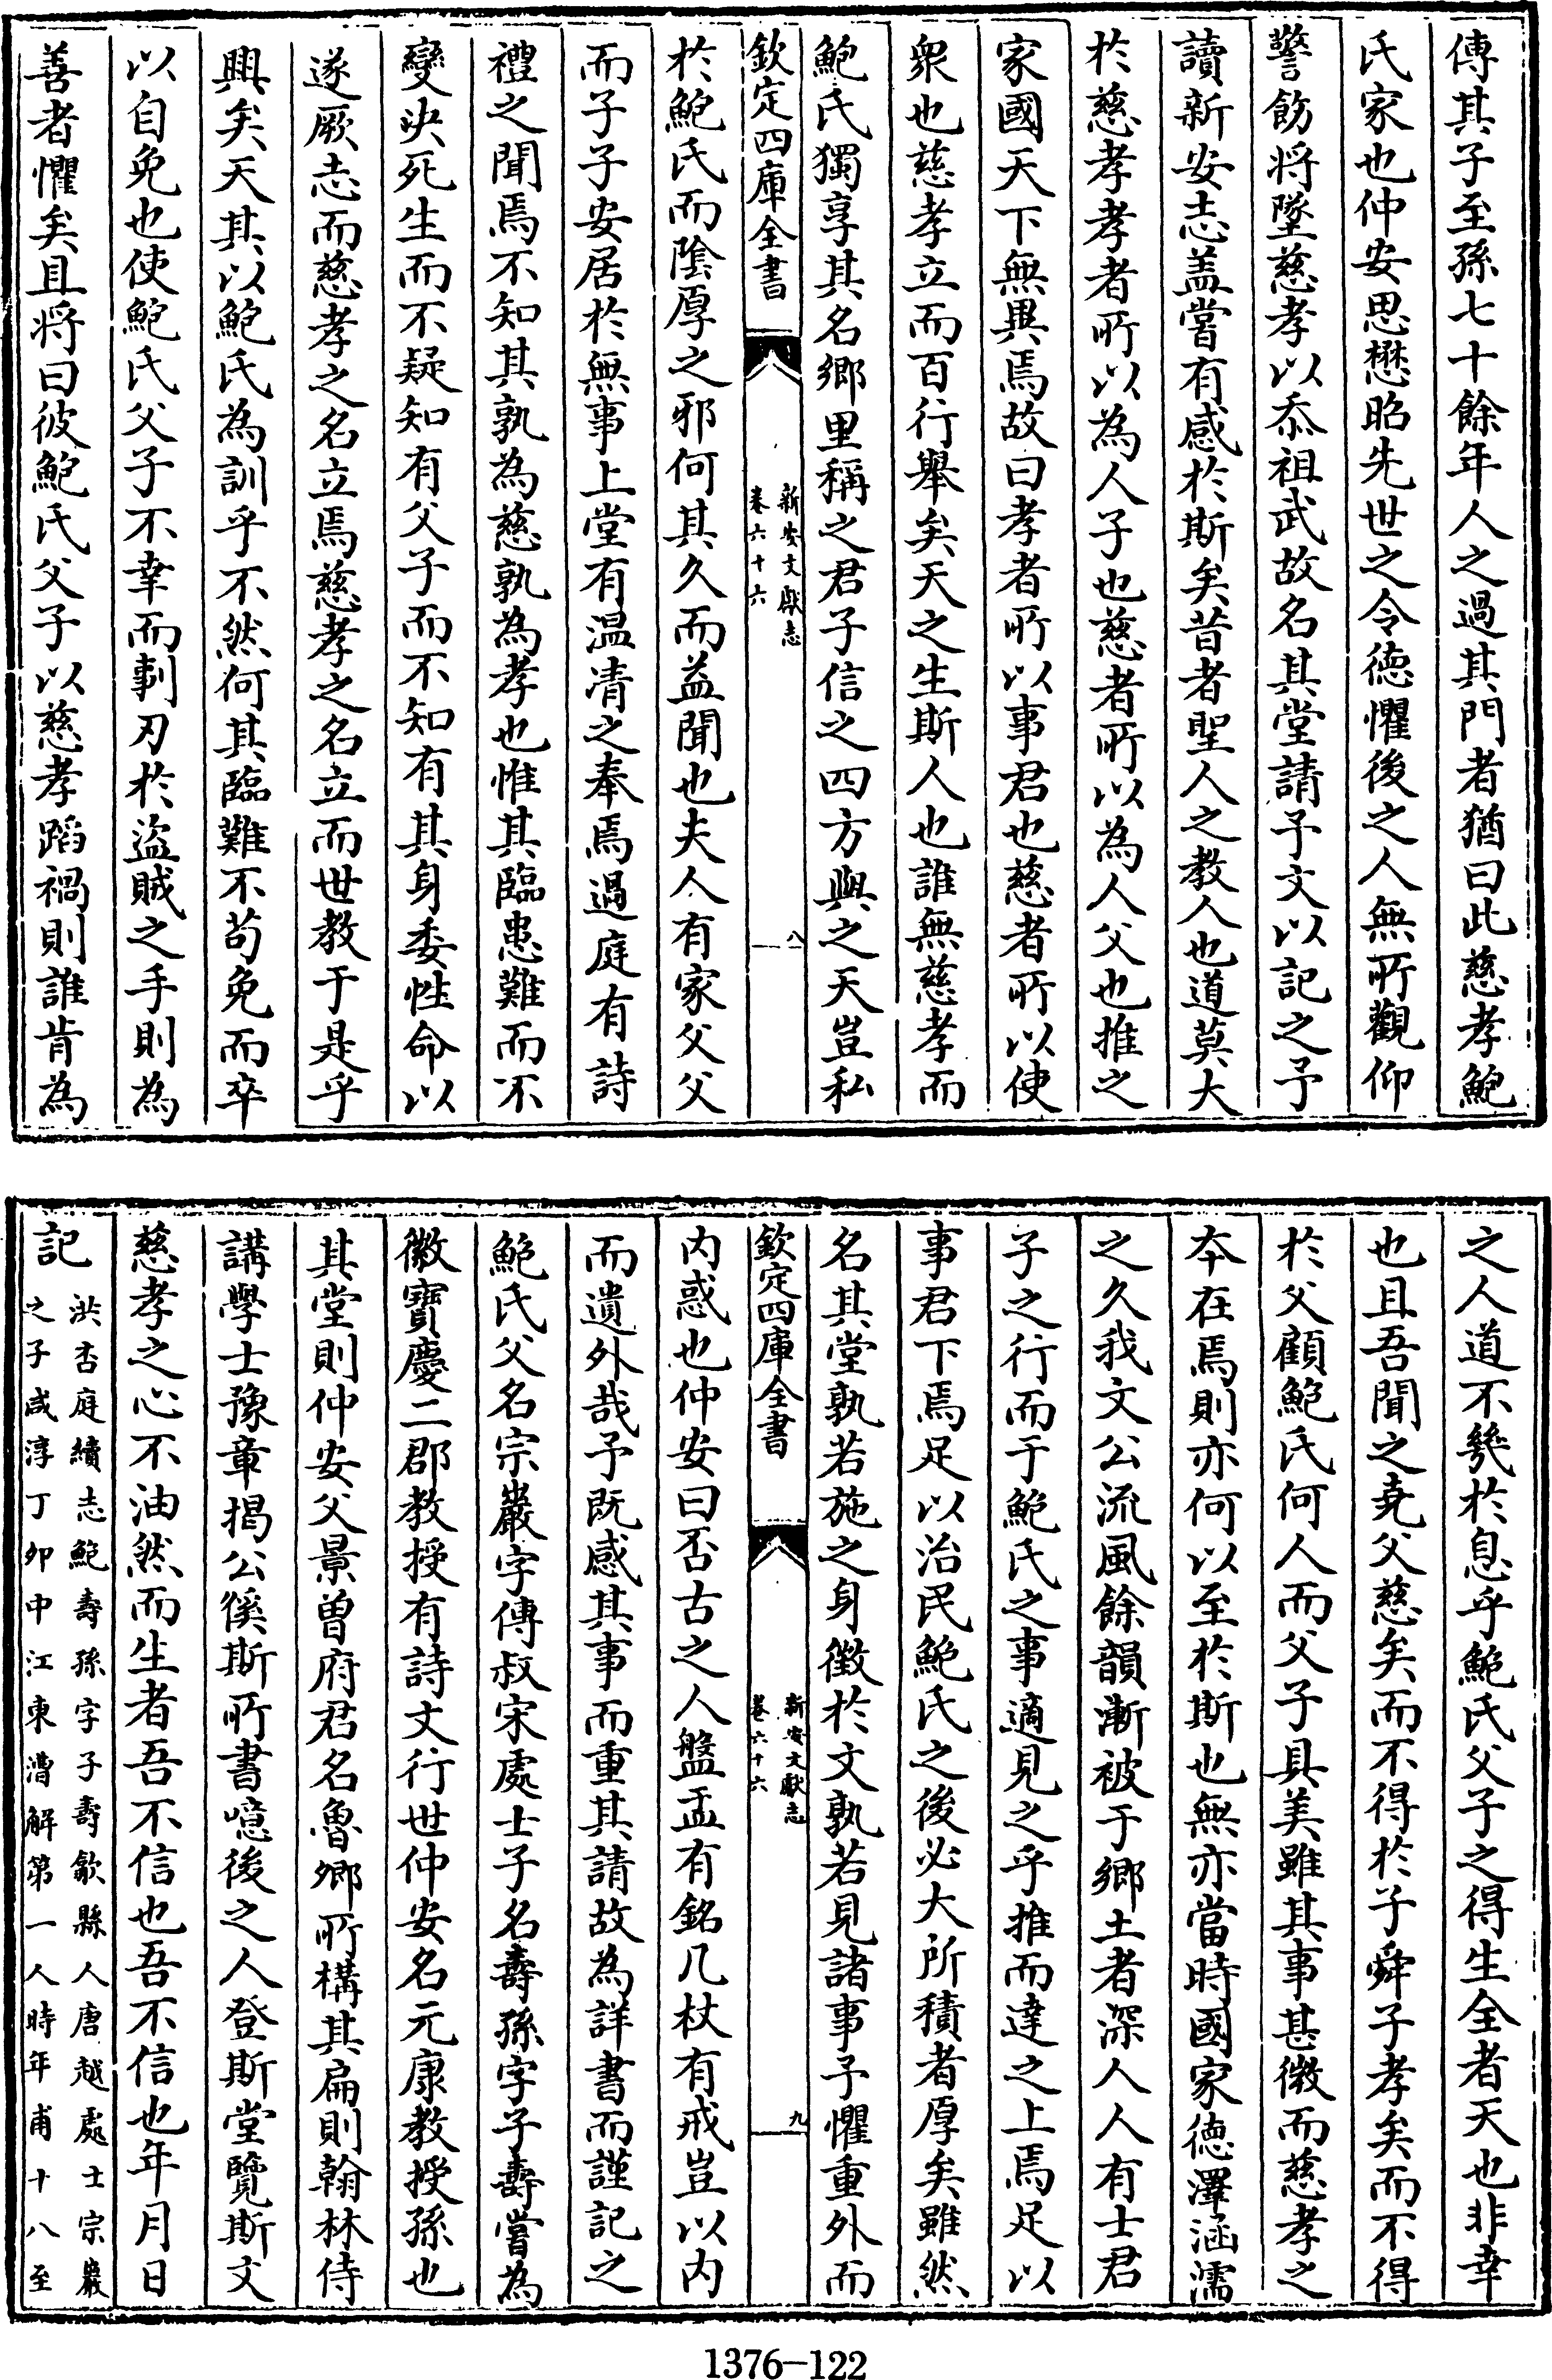 傳其子至孫七十餘年人之過其門者猶曰此慈孝鮑
氏家也仲安思懋昭先世之令德懼後之人無所觀仰
警飭將墜慈孝以忝祖武故名其堂請予文以記之予
讀新安志盖嘗有感於斯矣昔者聖人之教人也道莫大
於慈孝孝者所以為人子也慈者所以為人父也推之
家國天下無異焉故曰孝者所以事君也慈者所以使
衆也慈孝立而百行舉矣天之生斯人也誰無慈孝而
鮑氏獨享其名鄉里稱之君子信之四方興之天豈私
欽定四庫全書
新安文獻志
卷六十六
八
於鮑氏而陰厚之邪何其久而益聞也夫人有家父父
而子子安居於無事上堂有温凊之奉焉過庭有詩
禮之聞焉不知其孰為慈孰為孝也惟其臨患難而不
變决死生而不疑知有父子而不知有其身委性命以
遂厥志而慈孝之名立焉慈孝之名立而世教于是乎
興矣天其以鮑氏為訓乎不然何其臨難不苟免而卒
以自免也使鮑氏父子不幸而剚刃於盜賊之手則為
善者懼矣且將曰彼鮑氏父子以慈孝蹈禍則誰肯為
之人道不幾於息乎鮑氏父子之得生全者天也非幸
也且吾聞之堯父慈矣而不得於子舜子孝矣而不得
於父顧鮑氏何人而父子具美雖其事甚微而慈孝之
本在焉則亦何以至於斯也無亦當時國家德澤涵濡
之久我文公流風餘韻漸被于鄉土者深人人有士君
子之行而于鮑氏之事適見之乎推而達之上焉足以
事君下焉足以治民鮑氏之後必大所積者厚矣雖然
名其堂孰若施之身徵於文孰若見諸事予懼重外而
欽定四庫全書
新安文獻志
卷六十六
九
内惑也仲安曰否古之人盤盂有銘几杖有戒豈以内
而遺外哉予既感其事而重其請故為詳書而謹記之
鮑氏父名宗巖字傳叔宋處士子名壽孫字子壽嘗為
徽寶慶二郡教授有詩文行世仲安名元康教授孫也
其堂則仲安父景曾府君名魯卿所構其扁則翰林侍
講學士豫章揭公徯斯所書噫後之人登斯堂覽斯文
慈孝之心不油然而生者吾不信也吾不信也年月日
記
洪杏庭續志鮑壽孫字子壽歙縣人唐越處士宗巖
之子咸淳丁卯中江東漕解第一人時年甫十八至
1376—122